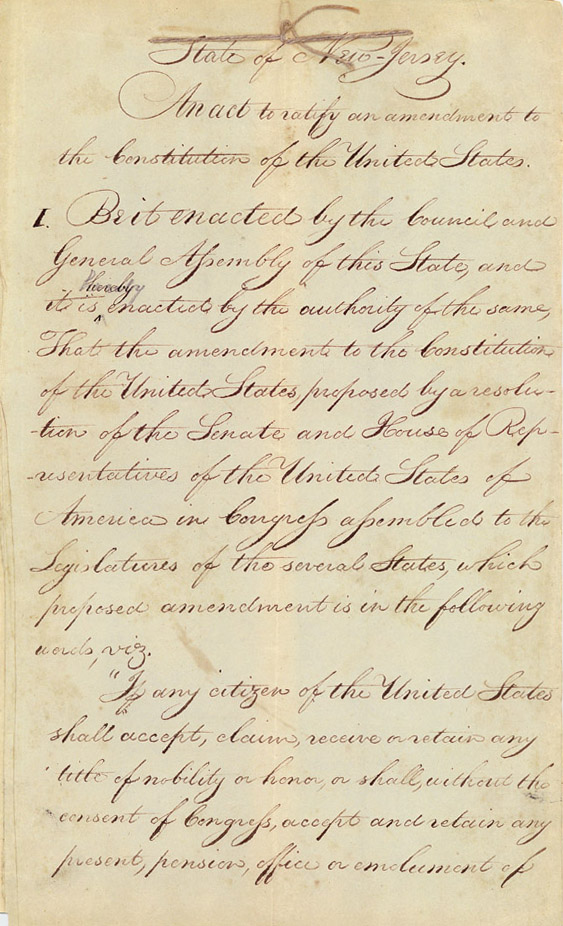 State of New-Jersey.
An act to ratify an amendment to
the Constitution of the United States.
I. Be it enacted by the Council and
General Assembly of this State, and
hereby
it is enacted by the authority of the same,
That the amendment to the Constitution
of the United States proposed by a resolu-
-tion of the Senate and House of Rep-
-resentatives of the United States of
America in Congress assembled to the
Legislatures of the several States, which
proposed amendment is in the following
words, viz.
"If any citizen of the United States
" shall accept, claim, receive or retain any
title of nobility or honor, or shall, without the
consent of Congress, accept and retain any
present, pension, office or emolument of